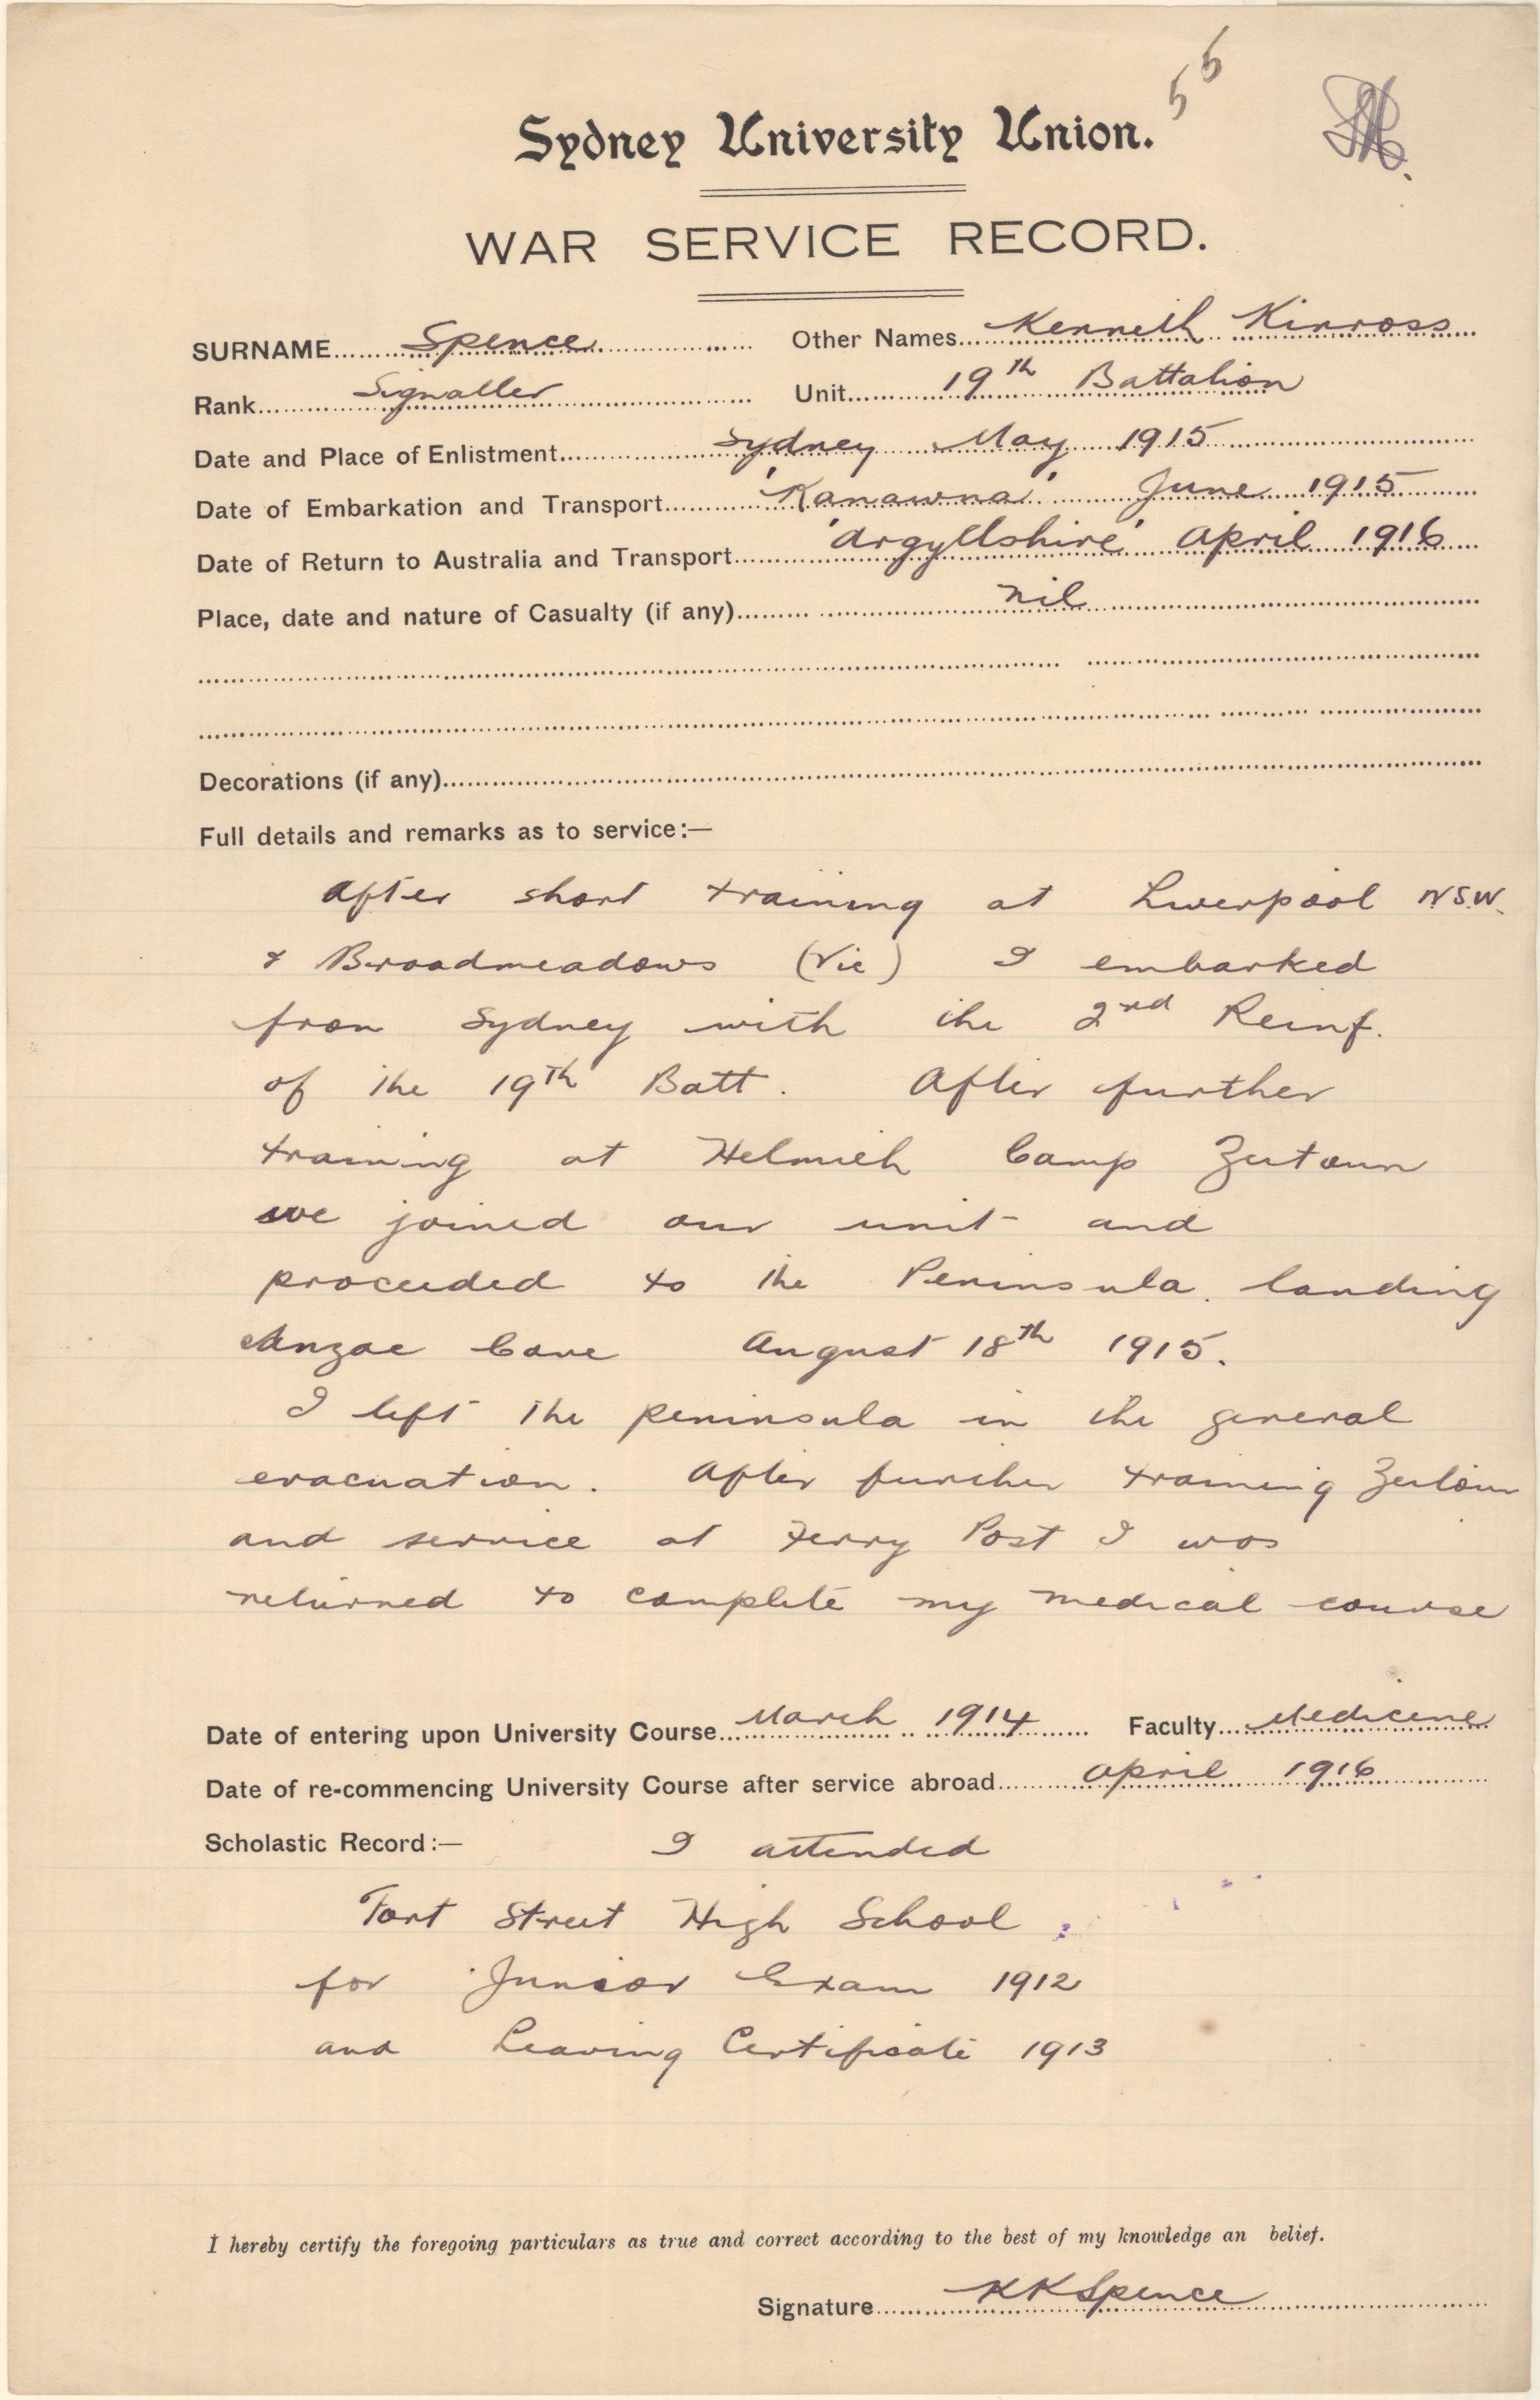 56
Sydney University Union.
WAR SERVICE RECORD.
SURNAME Spence Other Names Kenneth Kinross
Rank Signaller Unit 19th Battalion
Date and Place of Enlistment Sydney May 1915
Date of Embarkation and Transport 'Kanawna' June 1915
Date of Return to Australia and Transport 'Argyllshire' April 1916
Place, date and nature of Casualty (if any) nil
Decorations (if any)
Full details and remarks as to service:—
After short training at Liverpool NSW.
& Broadmeadows (Vic) I embarked
from Sydney with the 2nd Reinf.
of the 19th Batt. After further
training at Helmieh Camp Zeitoun
we joined our unit and
proceeded to the Peninsula. landing
Anzac Cove August 18th 1915.
I left the peninsula in the general
evacuation. After further training Zeitoun
and service at Ferry Post I was
returned to complete my medical course
Date of entering upon University Course March 1914 Faculty Medicine
Date of re-commencing University Course after service abroad April 1916
Scholastic Record:— I attended
Fort Street High School
for Junior Exam 1912
and Leaving Certificate 1913
I hereby certify the foregoing particulars as true and correct according to the best of my knowledge an belief.
Signature KKSpence